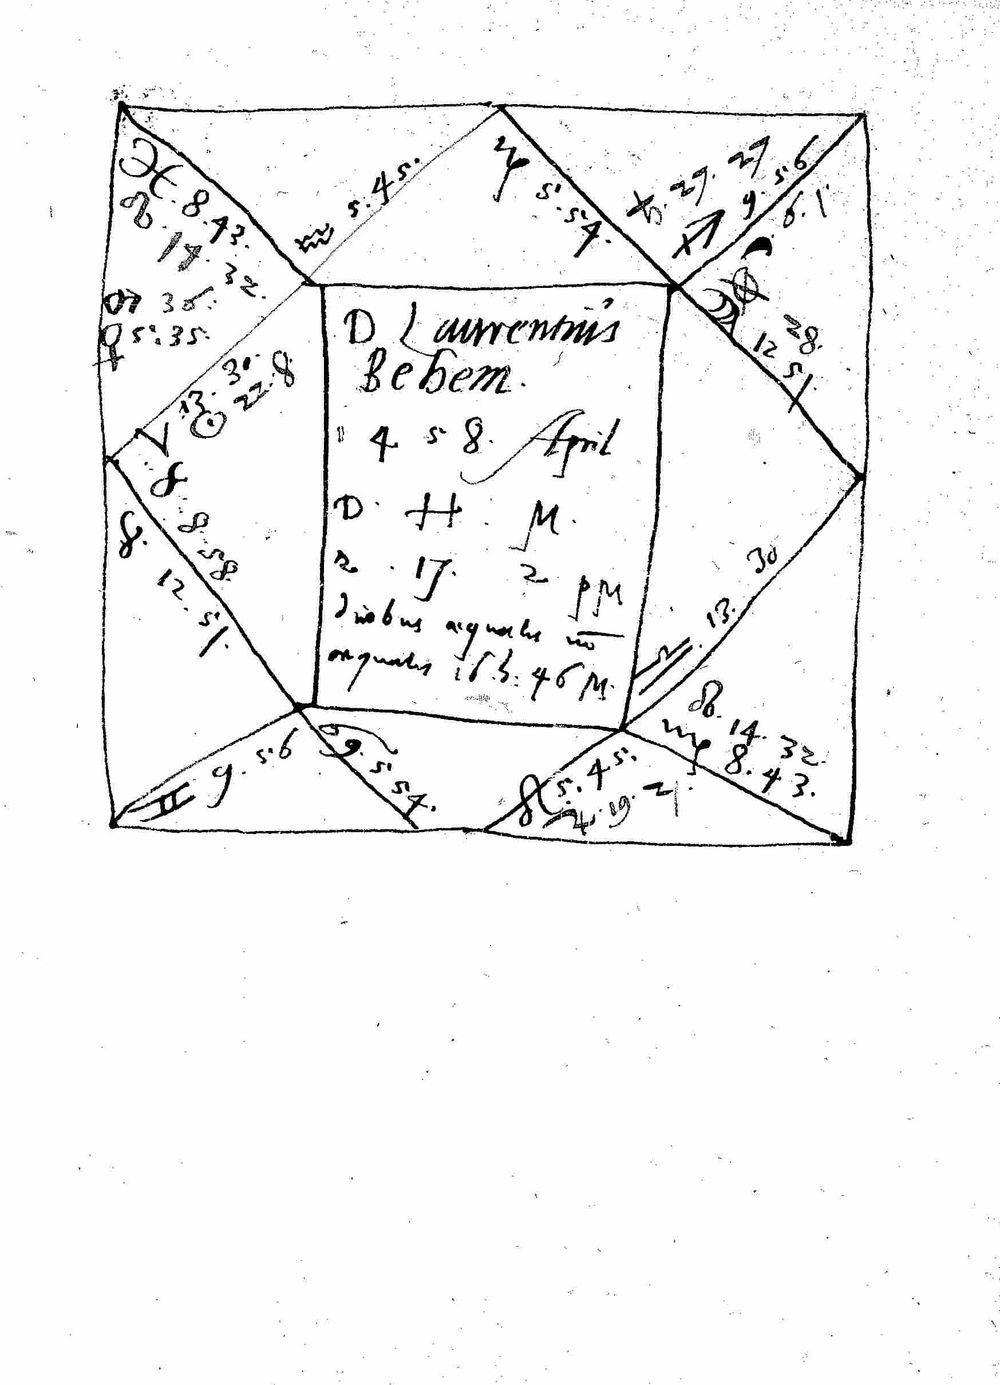 ♓ 8.43.
☊ 14 32.
♂ 36.
♀ 5.35.
♒ 5.45.
♑ 5.54.
♄ 27. 27
♐ 9.56
☽ 6.1
28
12 51
D Laurentius
Behem.
1458. April
D. H. M.
2 . 17. 2 PM
aequales
16 h. 46 M.
♈ 13.30
☉ 22.8
☿ 8.58
♉ 12.51
♊ 9.56
♋ 5.54.
♌ 5.45.
♃ 19.21
♎ 13. 30
☋ 14. 32.
♍ 8.43.